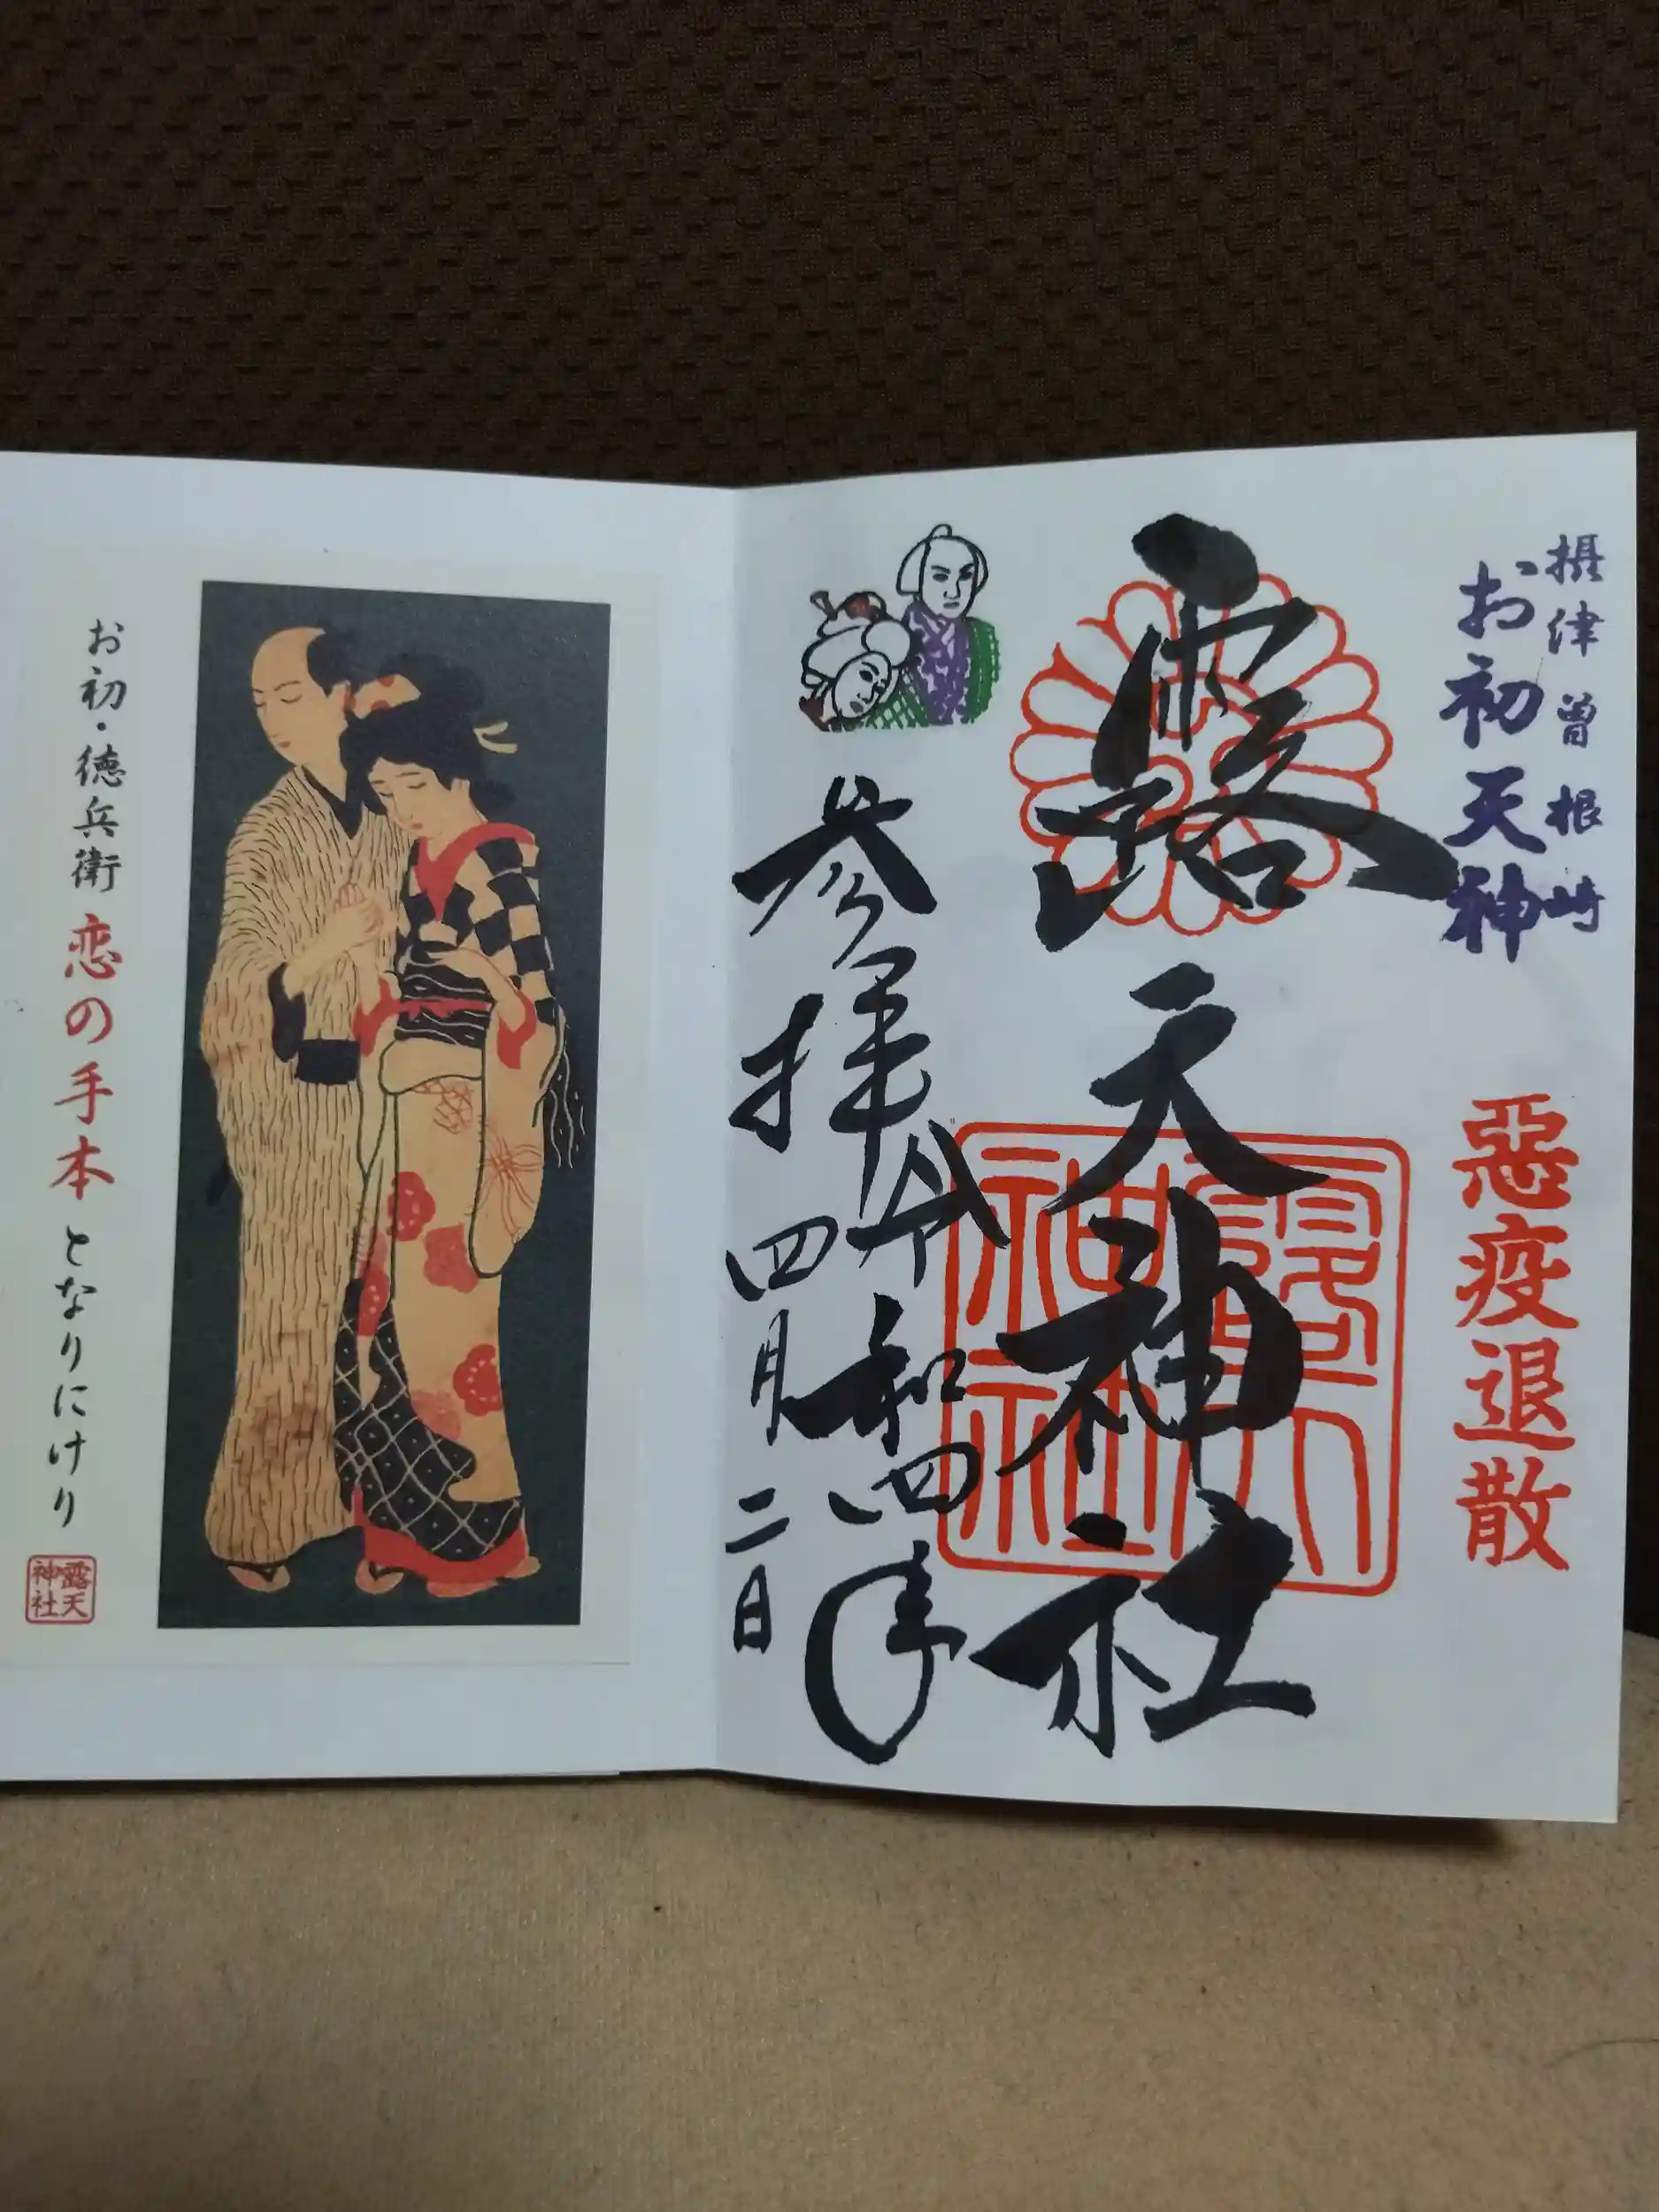 摂津曽根崎
お初天神
惡疫退散
露天神社
露天
神社
参拝
令和四年
四月二日
お初・徳兵衛 恋の手本 となりにけり
露天
神社